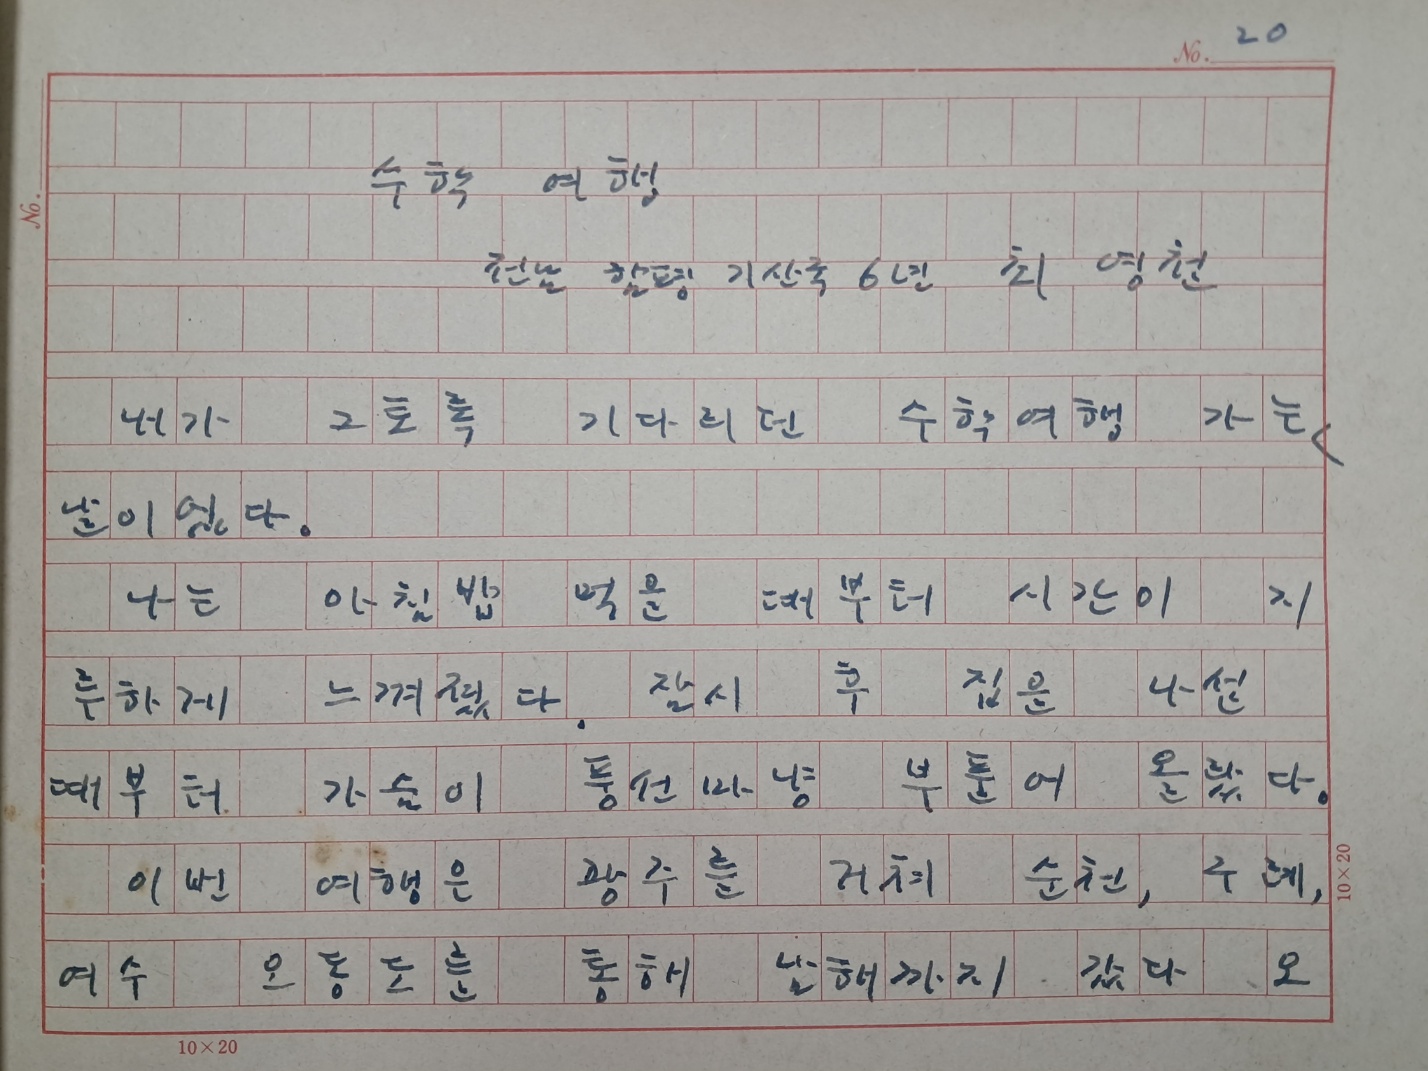 No. 20
No.
수학 여행
전남 함평 기산국 6년 최 영천
내가 그토록 기다리던 수학여행 가는
날이 었다.
나는 아침밥 먹을 때부터 시간이 지
루하게 느껴졌다. 잠시 후 집을 나선
때부터 가슴이 풍선마냥 부풀어 올랐다.
이번 여행은 광주를 거쳐 순천, 구례,
여수 오동도를 통해 남해까지 갔다 오
10×20
10×20